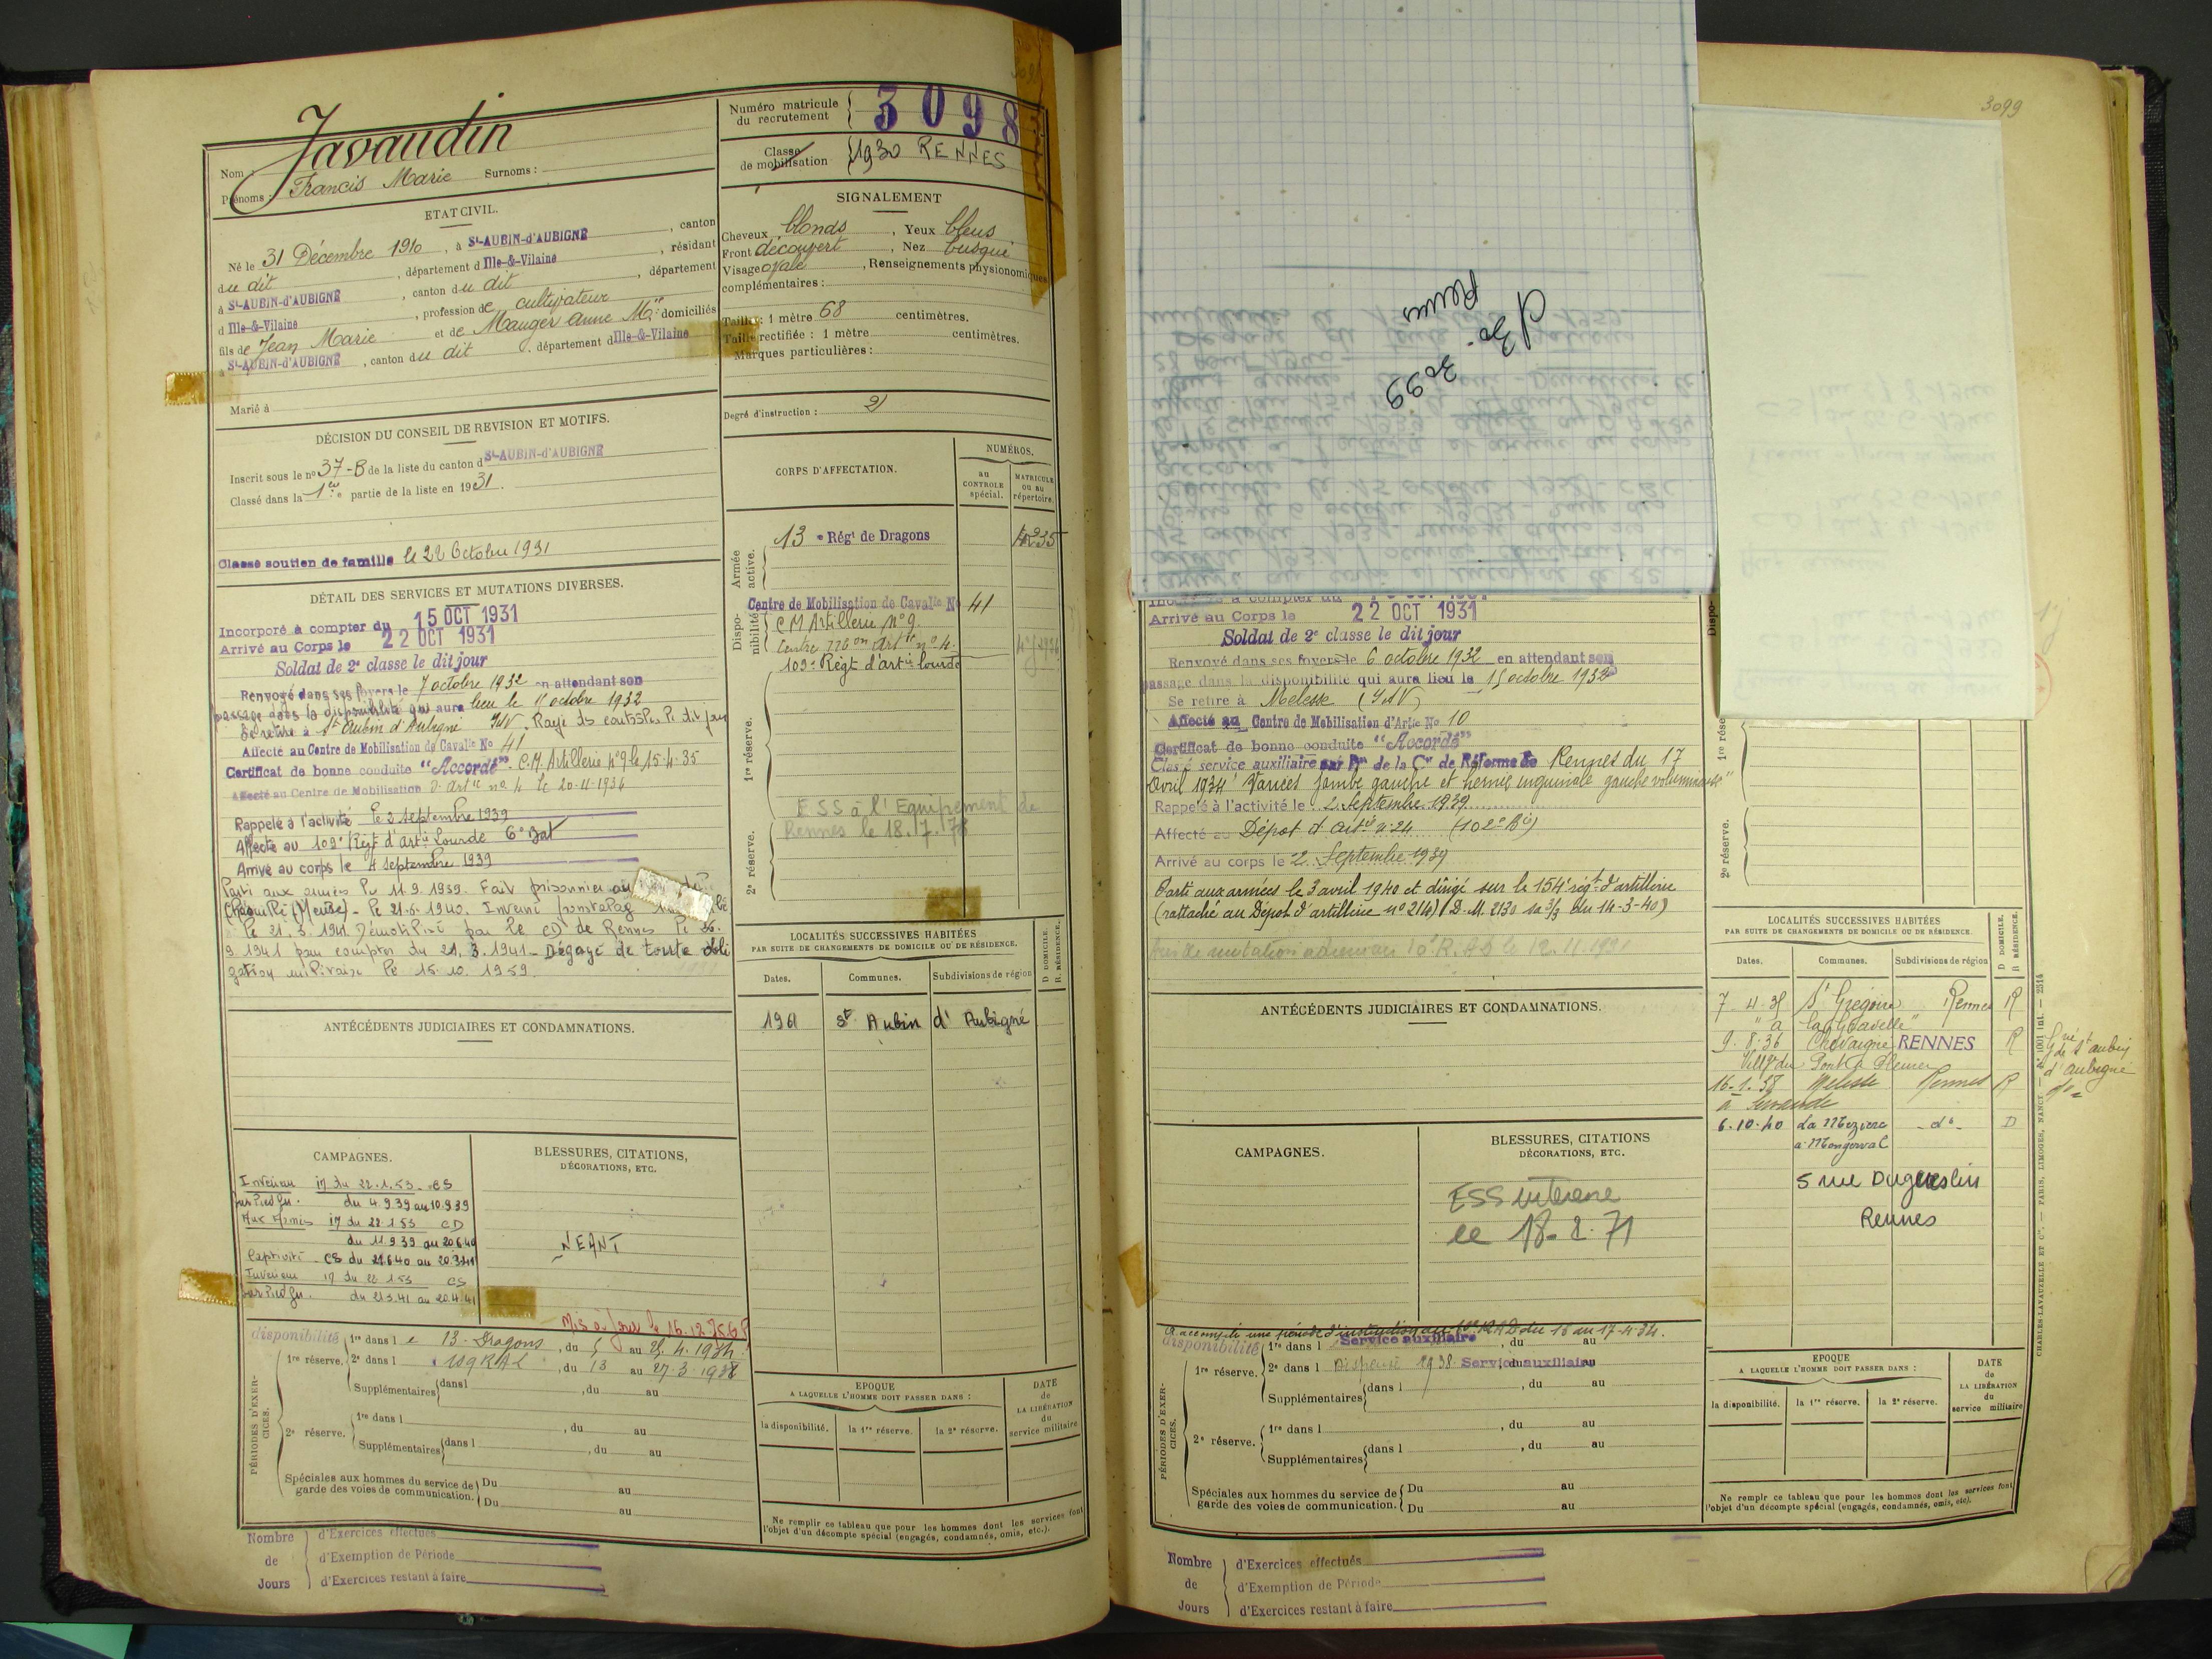 Javaudin
Nom :
Prénoms : Francis Marie Surnoms :
ETAT CIVIL.
Né le 31 Décembre 1910, à St-AUBIN-d'AUBIGNE, canton
du dit, département d Ille-&-Vilaine, résidant
à St-AUBIN-D'AUBIGNE, canton du dit, département
d Ille-&-Vilaine, profession de cultivateur
fils de Jean Marie et de Mauger Anne Mie domiciliés
à St-AUBIN-d'AUBIGNE, canton du dit, département d Ille-&-Vilaine
Marié à
DÉCISION DU CONSEIL DE REVISION ET MOTIFS.
Inscrit sous le no 37-B de la liste du canton d St-AUBIN-d'AUBIGNE
Classé dans la 1ère partie de la liste en 1931.
Classé soutien de famille le 22 Octobre 1931
DÉTAIL DES SERVICES ET MUTATIONS DIVERSES.
Incorporé à compter du 15 OCT 1931
Arrivé au Corps le 22 OCT 1931
Soldat de 2e classe le dit jour
Renvoyé dans ses foyers le 7 octobre 1932 en attendant son
passage dans la disponibilité qui aura lieu le 15 octobre 1932
Se retire à St Aubin d'Aubigné I&V. Rayé des contrôles le dit jour
Affecté au Centre de Mobilisation de Cavalie No 41
Certificat de bonne conduite "Accordé" - C.M. Artillerie no 9 le 15.4.35
Affecté au Centre de Mobilisation d'Artie no 4 le 20-11-1936
Rappelé à l'activité le 3 septembre 1939
Affecté au 109e Régt d'artie Lourde 6e Bat
Arrivé au corps le 4 septembre 1939
Parti aux armées le 11.9.1939. Fait prisonnier au
(Meuse) - le 21.6.1940. Interné frontstalag
le 21.3.1941. Démobilisé par le CD de Rennes le 26.
9.1941 pour compter du 21.3.1941 - Dégagé de toute obli
gation militaire le 15.10.1959.
ANTÉCÉDENTS JUDICIAIRES ET CONDAMNATIONS.
CAMPAGNES.
Intérieur in du 22.1.53 - CS
du 4.9.39 au 10.9.39
Aux Armées in du 22.1.53 CD
du 11.9.39 au 20.6.40
Captivité - CS du 21.6.40 au 20.3.41
Intérieur in du 22.1.53 CS
du 21.3.41 au 20.4.41
BLESSURES, CITATIONS,
DÉCORATIONS, ETC.
NEANT
Mis à jour le 16.12.75
PÉRIODES D'EXERCICES.
disponibilité
1re réserve.
1re dans le 13e Dragons, du 5 au 25.4.1934
2e dans l 109 RAL, du 13 au 27.3.1938
Supplémentaires dans l , du au
2e réserve.
1re dans l , du au
Supplémentaires dans l , du au
Spéciales aux hommes du service de garde des voies de communication.
Du au
Du au
Nombre de Jours
d'Exercices effectués
d'Exemption de Période
d'Exercices restant à faire
Numéro matricule du recrutement 3098
Classe de mobilisation 1930 RENNES
SIGNALEMENT
Cheveux blonds, Yeux bleus
Front découvert, Nez busqué
Visage ovale, Renseignements physionomiques
complémentaires :
Taille : 1 mètre 68 centimètres.
Taille rectifiée : 1 mètre centimètres.
Marques particulières :
Degré d'instruction : 2
CORPS D'AFFECTATION.
NUMÉROS.
au CONTROLE spécial.
MATRICULE ou au répertoire.
Armée active.
13e Régt de Dragons 4235
Disponibilité
Centre de Mobilisation de Cavalie No 41
C M Artillerie No 9.
Centre Mon Artie no 4.
109e Régt d'artie lourde
1re réserve.
ESS à l'Equipement de
Rennes le 18.7.78
2e réserve.
LOCALITÉS SUCCESSIVES HABITÉES
PAR SUITE DE CHANGEMENTS DE DOMICILE OU DE RÉSIDENCE.
Dates. Communes. Subdivisions de région
D DOMICILE. R RÉSIDENCE.
1961 St Aubin d'Aubigné
EPOQUE
A LAQUELLE L'HOMME DOIT PASSER DANS :
la disponibilité. la 1re réserve. la 2e réserve.
DATE de LA LIBÉRATION du service militaire
Ne remplir ce tableau que pour les hommes dont les services font
l'objet d'un décompte spécial (engagés, condamnés, omis, etc.).
3099
Cl 30.
Rennes
3099
Arrivé au Corps le 22 OCT 1931
Soldat de 2e classe le dit jour
Renvoyé dans ses foyers le 6 octobre 1932 en attendant son
passage dans la disponibilité qui aura lieu le 15 octobre 1932
Se retire à Melesse (I&V)
Affecté au Centre de Mobilisation d'Artie No 10
Certificat de bonne conduite "Accordé"
Classé service auxiliaire par Pon de la Con de Réforme de Rennes du 17
Avril 1934 "Varices jambe gauche et hernie inguinale gauche volumineuse"
Rappelé à l'activité le 2 Septembre 1939
Affecté au Dépot d'artie no 24 (102e Bie)
Arrivé au corps le 2 Septembre 1939
Parti aux armées le 3 avril 1940 et dirigé sur le 154e régt d'artillerie
(rattaché au Dépot d'artillerie no 214) (D.M. 2130 10 3/3 du 14-3-40)
ANTÉCÉDENTS JUDICIAIRES ET CONDAMNATIONS.
CAMPAGNES.
BLESSURES, CITATIONS
DÉCORATIONS, ETC.
ESS interne
le 18-2-71
A accompli une période d'instruction au 10e R.A.D du 16 au 17-4-34.
PÉRIODES D'EXERCICES.
disponibilité
1re réserve.
1re dans l Service auxiliaire, du au
2e dans l Dispensé 1938 Service auxiliaire
Supplémentaires dans l , du au
2e réserve.
1re dans l , du au
Supplémentaires dans l , du au
Spéciales aux hommes du service de garde des voies de communication.
Du au
Du au
Nombre de Jours
d'Exercices effectués
d'Exemption de Période
d'Exercices restant à faire
1re réserve.
2e réserve.
LOCALITÉS SUCCESSIVES HABITÉES
PAR SUITE DE CHANGEMENTS DE DOMICILE OU DE RÉSIDENCE.
Dates. Communes. Subdivisions de région
D DOMICILE. R RÉSIDENCE.
7-4-35 St Grégoire Rennes R
9.8.36 Chevaigné RENNES R
16-1-38 Melesse Rennes R
6.10.40 La Mézière - do - D
à Mongerval
5 rue Duguesclin
Rennes
de St aubin
d'aubigné
do
EPOQUE
A LAQUELLE L'HOMME DOIT PASSER DANS :
la disponibilité. la 1re réserve. la 2e réserve.
DATE de LA LIBÉRATION du service militaire
Ne remplir ce tableau que pour les hommes dont les services font
l'objet d'un décompte spécial (engagés, condamnés, omis, etc).
CHARLES-LAVAUZELLE ET Cie — PARIS, LIMOGES, NANCY